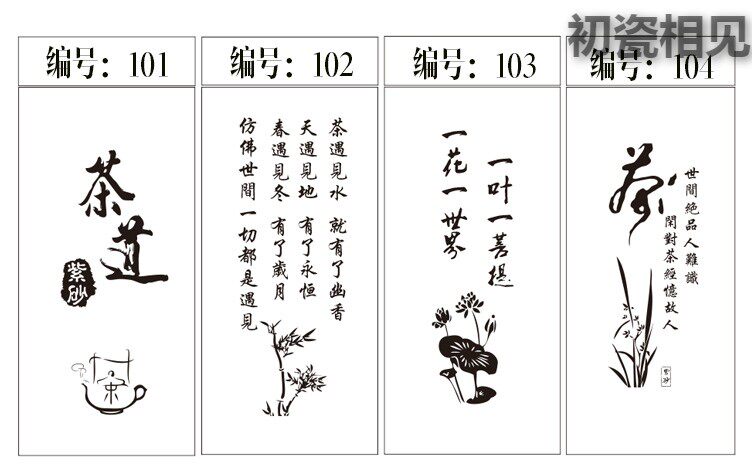 初瓷相见
编号：101
编号：102
编号：103
编号：104
茶道
紫砂
茶遇見水 就有了幽香
天遇見地 有了永恒
春遇見冬 有了歲月
仿佛世間一切都是遇見
一叶一菩提
一花一世界
茶
世間絶品人難識
閑對茶經憶故人